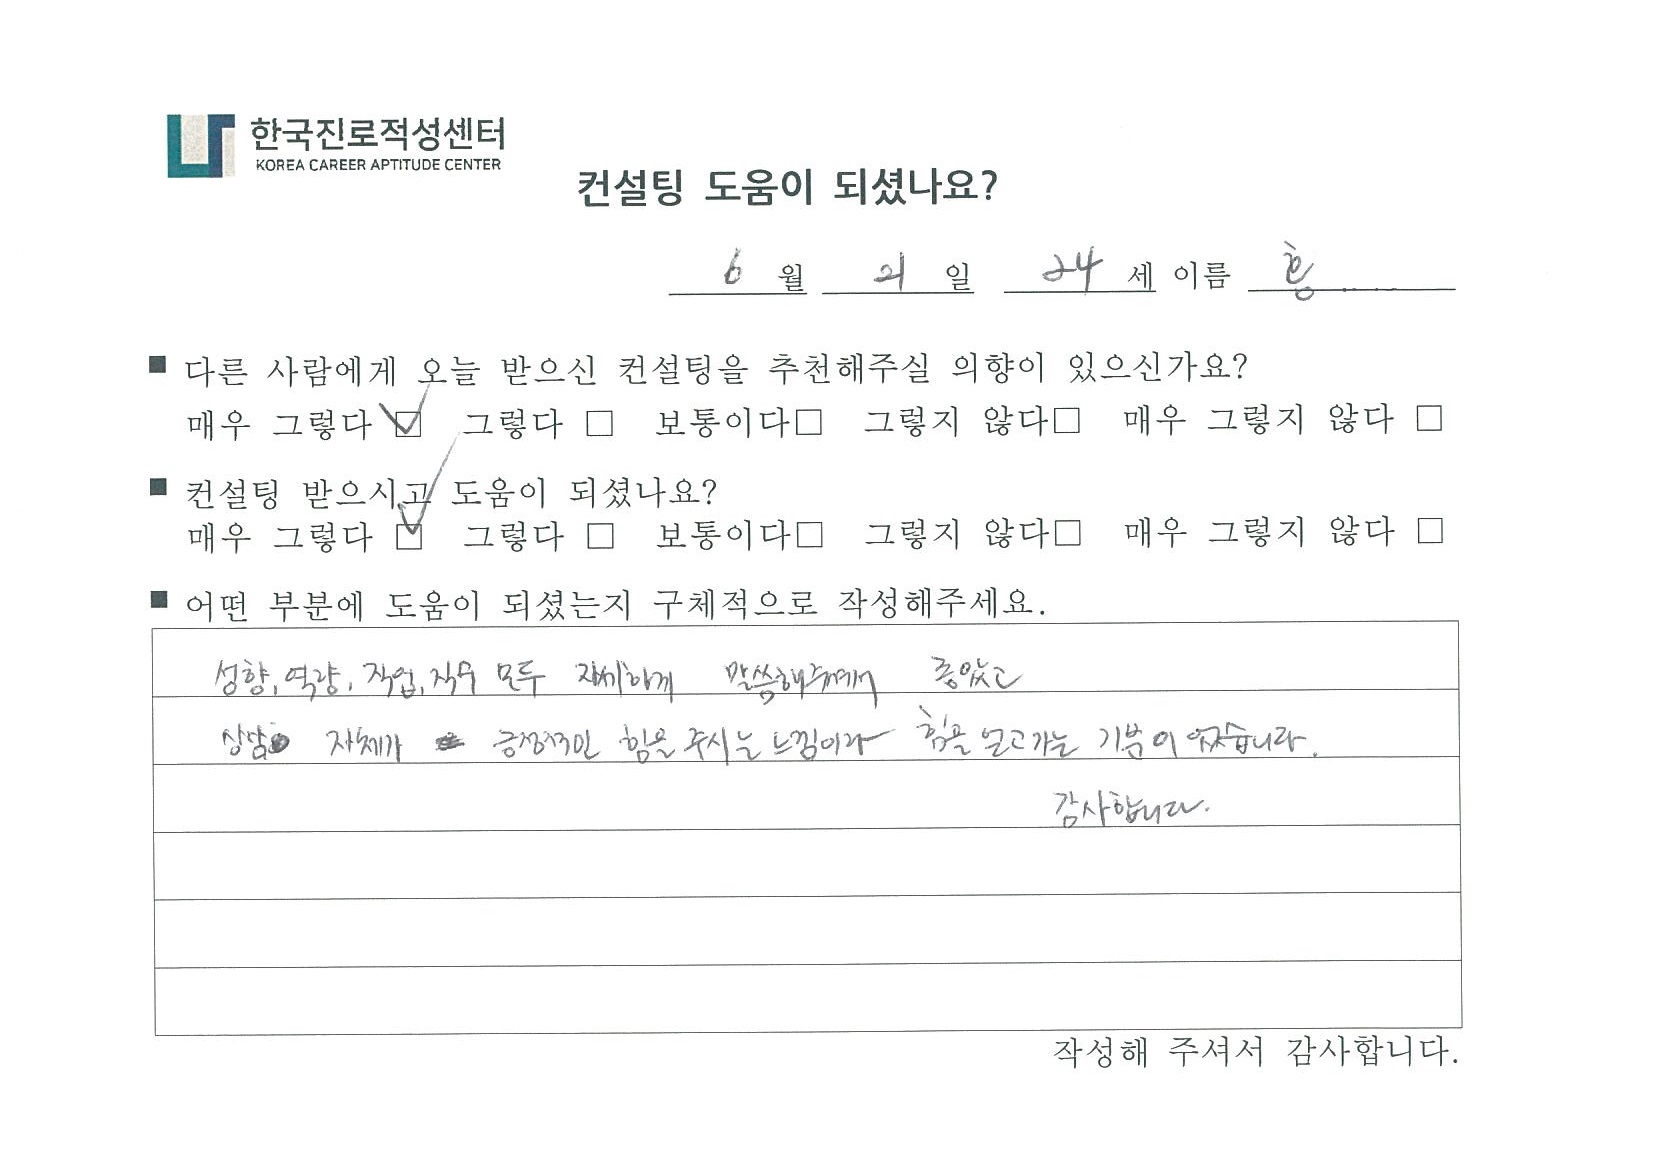 한국진로적성센터
KOREA CAREER APTITUDE CENTER
컨설팅 도움이 되셨나요?
6 월 21 일 24 세 이름 홍
■ 다른 사람에게 오늘 받으신 컨설팅을 추천해주실 의향이 있으신가요?
매우 그렇다 ☑ 그렇다 □ 보통이다□ 그렇지 않다□ 매우 그렇지 않다 □
■ 컨설팅 받으시고 도움이 되셨나요?
매우 그렇다 ☑ 그렇다 □ 보통이다□ 그렇지 않다□ 매우 그렇지 않다 □
■ 어떤 부분에 도움이 되셨는지 구체적으로 작성해주세요.
성향, 역량, 직업, 직무 모두 자세하게 말씀해주셔서 좋았고
상담 자체가 긍정적인 힘을 주시는 느낌이라 힘을 얻고가는 기분이었습니다.
감사합니다.
작성해 주셔서 감사합니다.